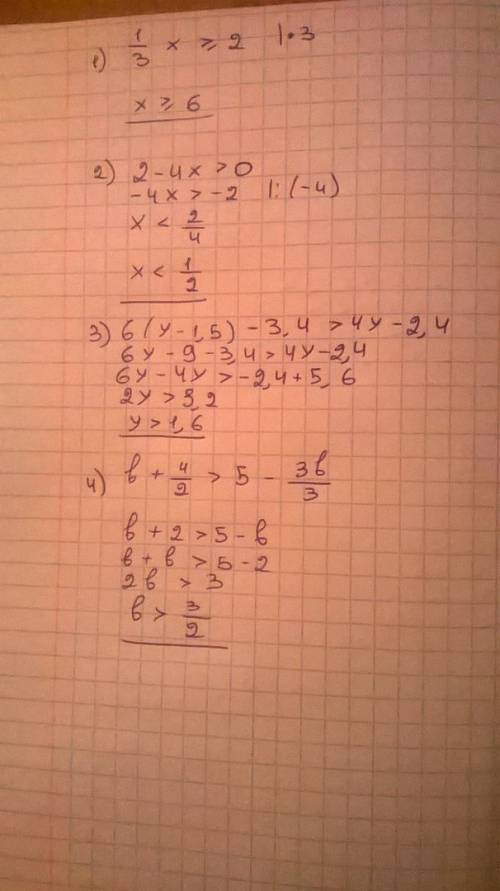 1) 1/3 x ≥ 2 |·3
x ≥ 6
2) 2 - 4x > 0
-4x > -2 |: (-4)
x < 2/4
x < 1/2
3) 6(y - 1,5) - 3,4 > 4y - 2,4
6y - 9 - 3,4 > 4y - 2,4
6y - 4y > -2,4 + 5,6
2y > 3,2
y > 1,6
4) b + 4/2 > 5 - 3b/3
b + 2 > 5 - b
b + b > 5 - 2
2b > 3
b > 3/2